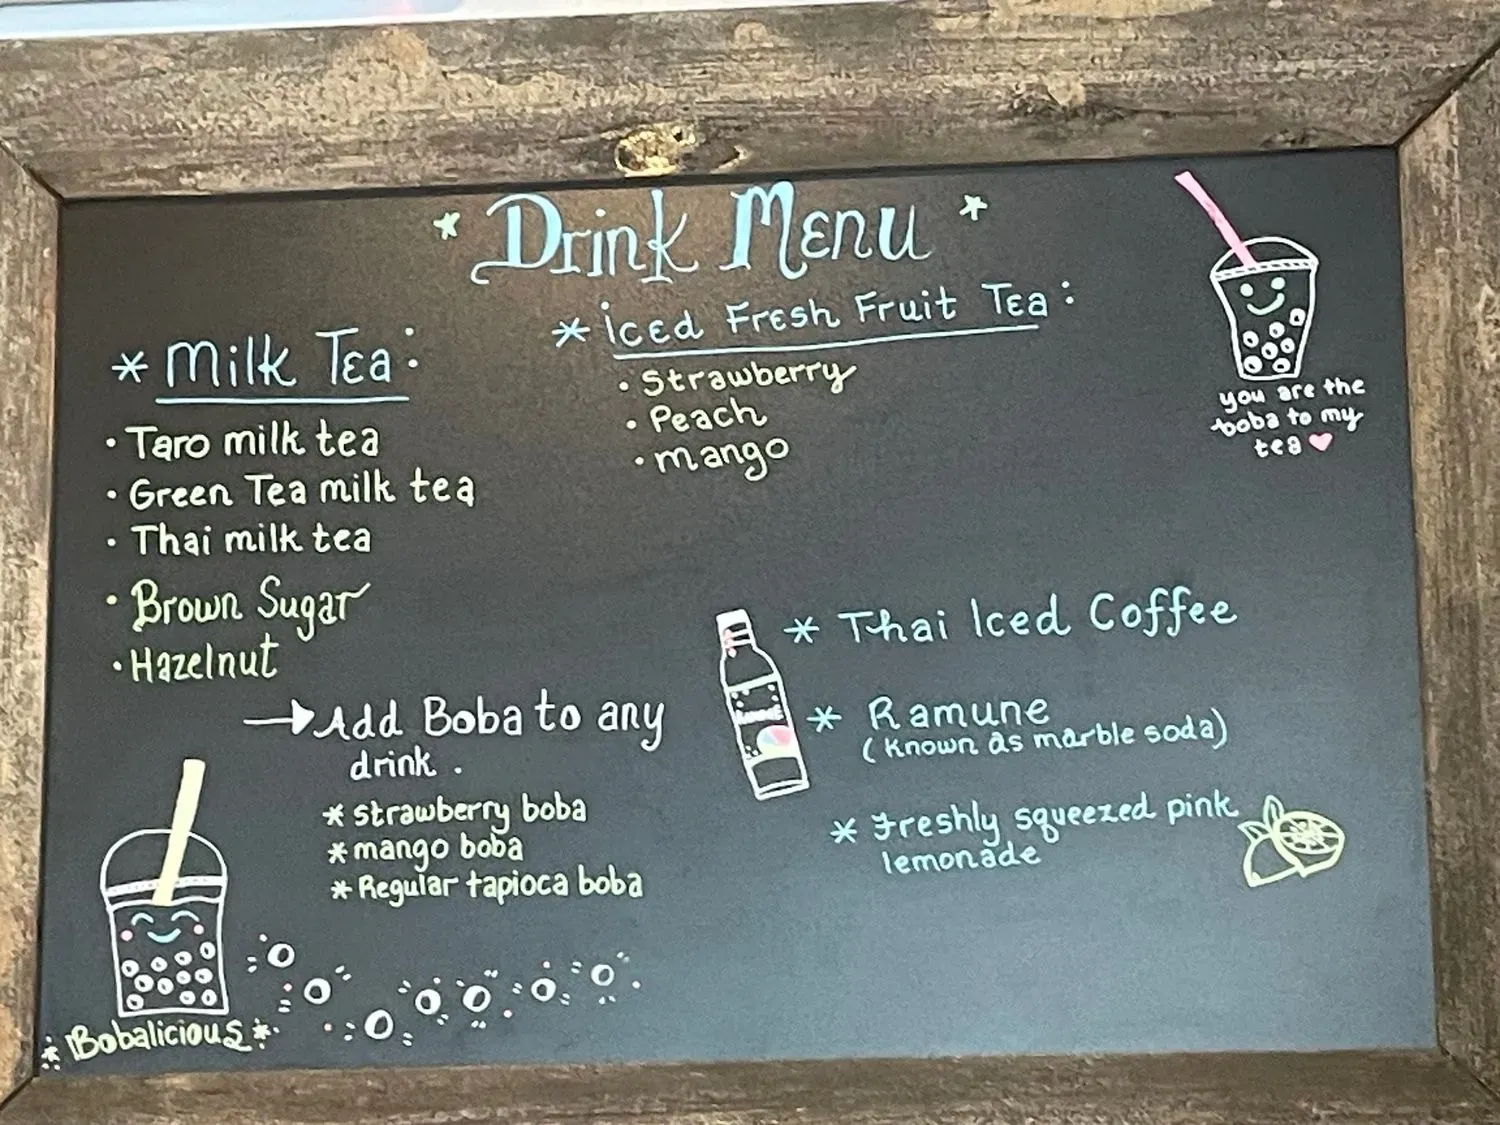 Drink Menu
* Milk Tea:
• Taro milk tea
• Green Tea milk tea
• Thai milk tea
• Brown Sugar
• Hazelnut
→ Add Boba to any
drink.
* strawberry boba
* mango boba
* Regular tapioca boba
Bobalicious
* iced Fresh Fruit Tea:
• Strawberry
• Peach
• mango
you are the
boba to my
tea ♥
* Thai Iced Coffee
* Ramune
(known as marble soda)
* Freshly squeezed pink
lemonade